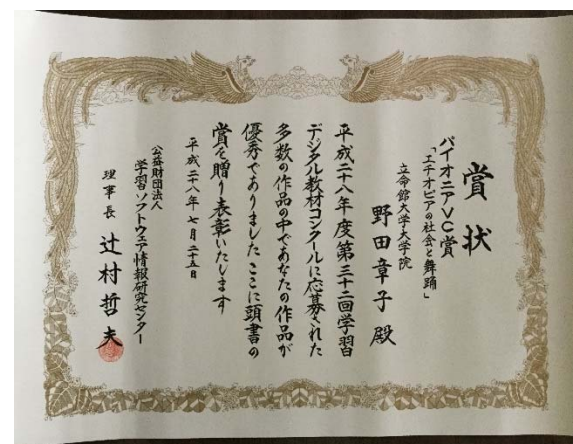 賞状
パイオニアVC賞
「エチオピアの社会と舞踊」
立命館大学大学院
野田章子殿
平成二十八年度第三十二回学習
デジタル教材コンクールに応募された
多数の作品の中であなたの作品が
優秀でありました ここに頭書の
賞を贈り表彰いたします
平成二十八年七月二十五日
公益財団法人
学習ソフトウェア情報研究センター
理事長 辻村哲夫